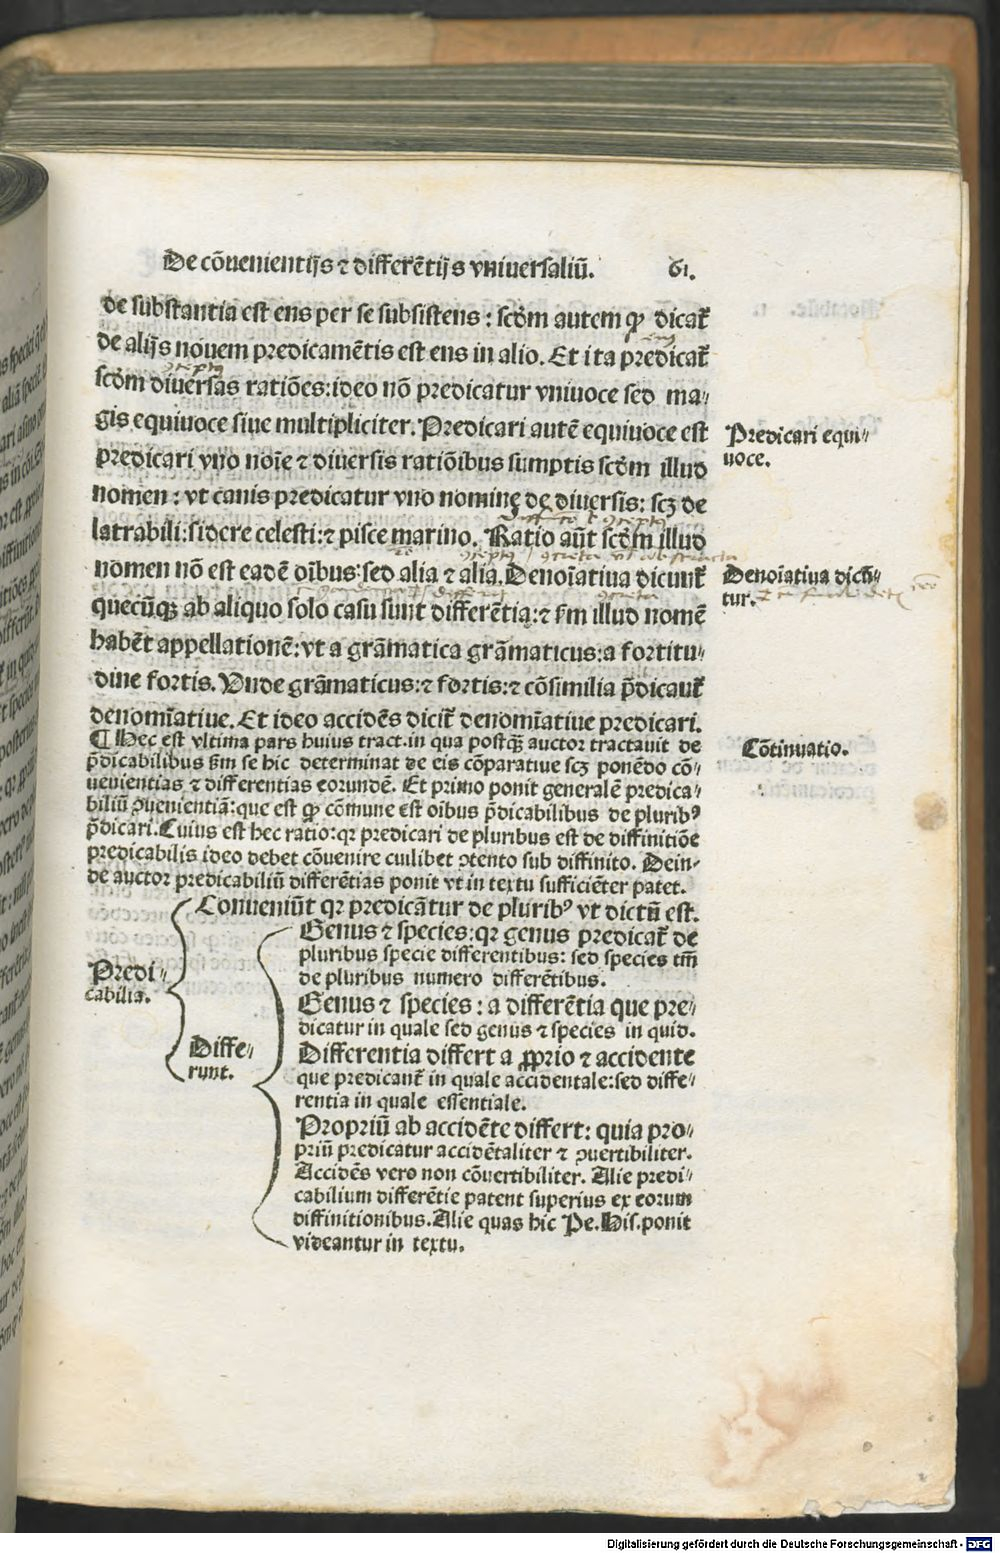 De cõuenientijs ⁊ differẽtijs vniuersaliũ. 61.
de substantia est ens per se subsistens : scḋm autem ꝙ dicať
de alijs nouem predicamẽtis est ens in alio. Et ita predicať
scḋm diuersas ratiões: ideo nõ predicatur vniuoce sed ma⸗
gis equiuoce siue multipliciter. Predicari autẽ equiuoce est
predicari vno noĩe ⁊ diuersis ratiõibus sumptis scḋm illud
nomen : vt canis predicatur vno nomine de diuersis: scꝫ de
latrabili: sidere celesti: ⁊ pisce marino. Ratio aũt scḋm illud
nomen nõ est eadẽ oĩbus: sed alia ⁊ alia. Denoĩatiua dicunť
quecũqꝫ ab aliquo solo casu sunt differẽtia: ⁊ ẜm illud nomẽ
habẽt appellationẽ: vt a grãmatica grãmaticus: a fortitu⸗
dine fortis. Vnde grãmaticus: ⁊ fortis: ⁊ cõsimilia p̃dicanť
denomĩatiue. Et ideo accidẽs diciť denomĩatiue predicari.
Predicari equi⸗
uoce.
Denoĩatiua dicũ⸗
tur.
¶ Hec est vltima pars huius tract. in qua postꝗ̃ auctor tractauit de
p̃dicabilibus ẜm se hic determinat de eis cõparatiue scꝫ ponẽdo cõ⸗
uenientias ⁊ differentias eorundẽ. Et primo ponit generalẽ predica⸗
biliũ ꝯuenientiã: que est ꝙ cõmune est oĩbus p̃dicabilibus de pluribꝰ
p̃dicari. Cuius est hec ratio: qꝛ predicari de pluribus est de diffinitiõe
predicabilis ideo debet cõuenire cuilibet ꝯtento sub diffinito. Dein⸗
de auctor predicabiliũ differẽtias ponit vt in textu sufficiẽter patet.
Cõtinuatio.
Predi⸗
cabilia.
Conueniũt qꝛ predicãtur de pluribꝰ vt dictũ est.
Differ⸗
runt.
Genus ⁊ species: qꝛ genus predicať de
pluribus specie differentibus: sed species tm̃
de pluribus numero differẽtibus.
Genus ⁊ species : a differẽtia que pre⸗
dicatur in quale sed genus ⁊ species in quid.
Differentia differt a ꝓprio ⁊ accidente
que predicanť in quale accidentale: sed diffe⸗
rentia in quale essentiale.
Propriũ ab accidẽte differt: quia pro⸗
priũ predicatur accidẽtaliter ⁊ ꝯuertibiliter.
Accidẽs vero non cõuertibiliter. Alie predi⸗
cabilium differẽtie patent superius ex eorum
diffinitionibus. Alie quas hic Pe. His. ponit
videantur in textu.
Digitalisierung gefördert durch die Deutsche Forschungsgemeinschaft - DFG